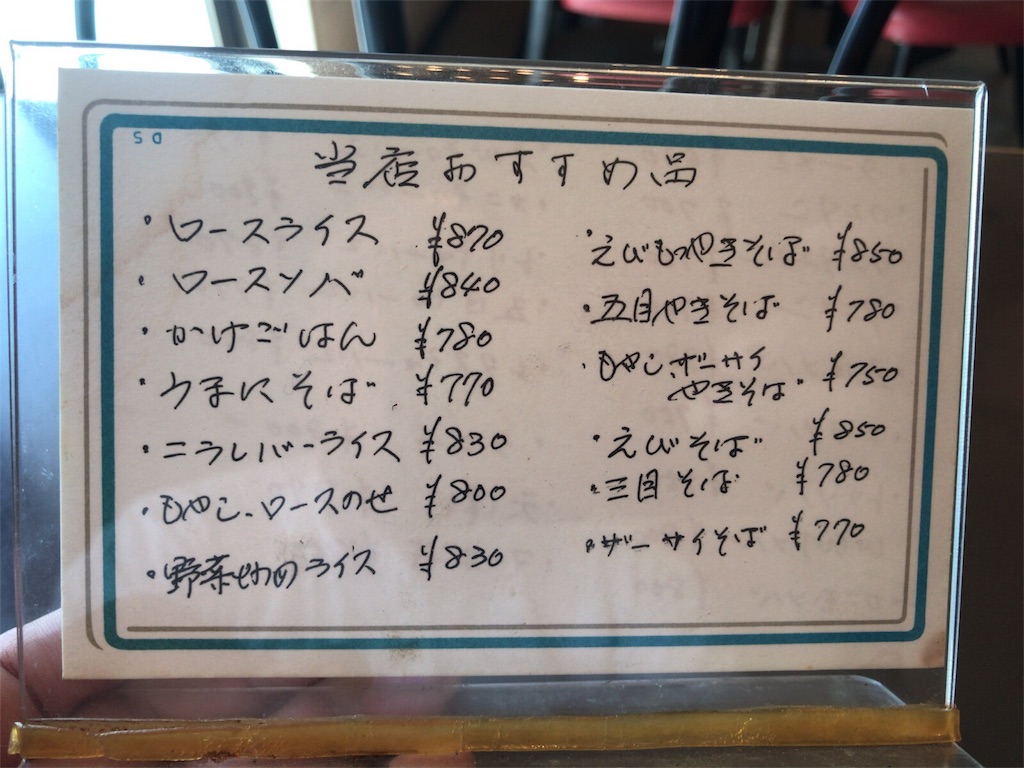 DS
当店おすすめ品
・ロースライス ¥870
・ロースソバ ¥840
・かけごはん ¥780
・うまにそば ¥770
・ニラレバーライス ¥830
・もやし、ロースのせ ¥800
・野菜炒めライス ¥830
・えびもやきそば ¥850
・五目やきそば ¥780
・もやし、ザーサイ
やきそば ¥750
・えびそば ¥850
・三目そば ¥780
・ザーサイそば ¥770